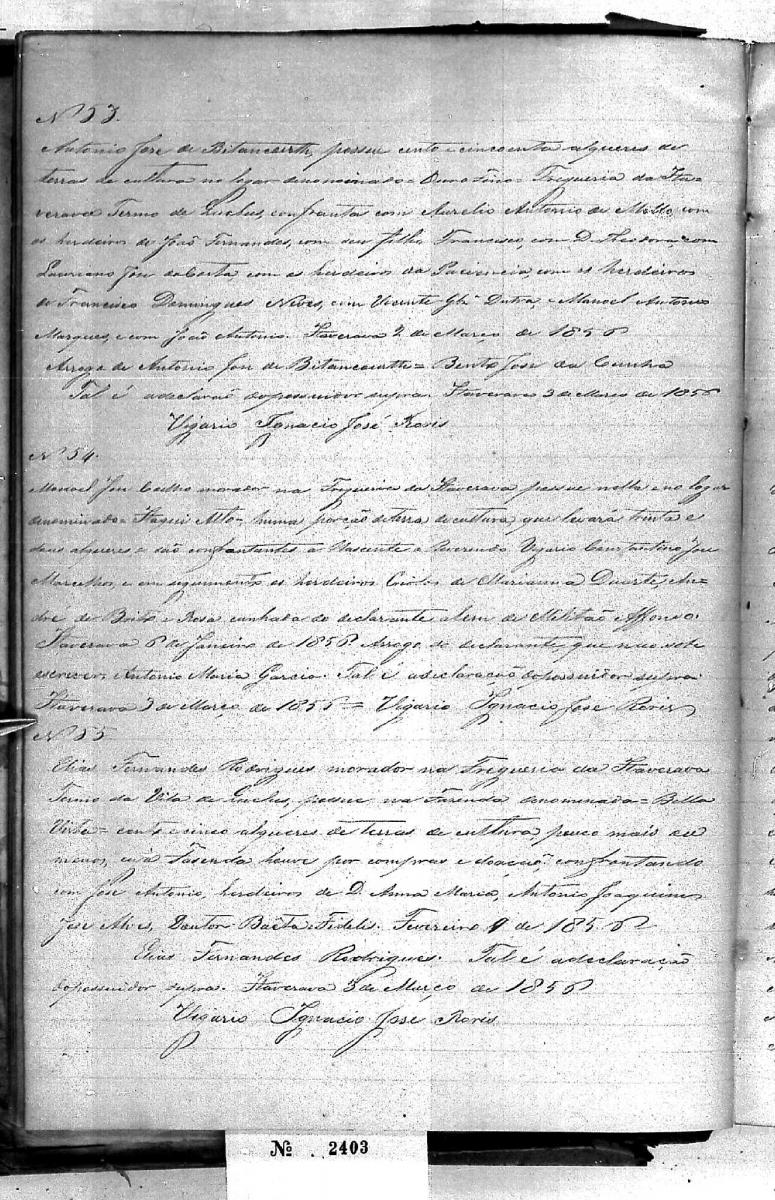 Nº 53.
Antonio Jose de Bitancourth, possue cento e cincoenta alqueres de
terras de cultura no logar denominado = = Freguezia da Ita=
verava Termo de Queluz, confronta com Aurelio Antonio de Mello, com
os herdeiros de João Fernandes, com seu filho Francisco, com D. Theodora, com
Lauriano Jose da Costa com os herdeiros da Paciencia, com os herdeiros
de Francisco Domingues Neves, com Vicente Glz Dutra, e Manoel Antonio
Marques, e com João Antonio. Itaverava 2 de Março de 1856
Arrogo de Antonio Jose de Bitancourth = Bento Jose da Cunha
Tal é a declaração do possuidor supra. Itaverava 3 de Março de 1856
Vigario Ignacio José
Nº 54.
Manoel Jose Coelho morador na Freguezia da Itaverava possue nella e no logar
denominado = Alto = huma porção de terra de cultura que levará trinta e
dous alqueres e são confrontantes a Nascente o Reverendo Vigario Constantino Jose
e em seguimento os herdeiros de Marianna Duarte, An=
dré de Brito e Rosa cunhada do declarante alem de Militão e Affonso.
Itaverava 6 de Janeiro de 1856. Arrogo do declarante, que não sabe
escrever, Antonio Maria Garcia. Tal é a declaração do possuidor supra.
Itaverava 3 de Março de 1856 = Vigario Ignacio Jose
Nº 55
Elias Fernandes Rodrigues morador na Freguezia da Itaverava
Termo da Vila de Queluz, possue na Fazenda denominada = Bella
Vista = cento e cinco alqueres de terras de cultura, pouco mais ou
menos, cuja Fasenda houve por compras e doação, confrontando
com Jose Antonio, herdeiros de D. Anna Maria, Antonio Joaquim,
Jose Alves, Doutor Baêta e Fidelis. Fevereiro 9 de 1856
Elias Fernandes Rodrigues. Tal é a declaração
do possuidor supra. Itaverava 3 de Março de 1856
Vigario Ignacio Jose
Nº . 2403